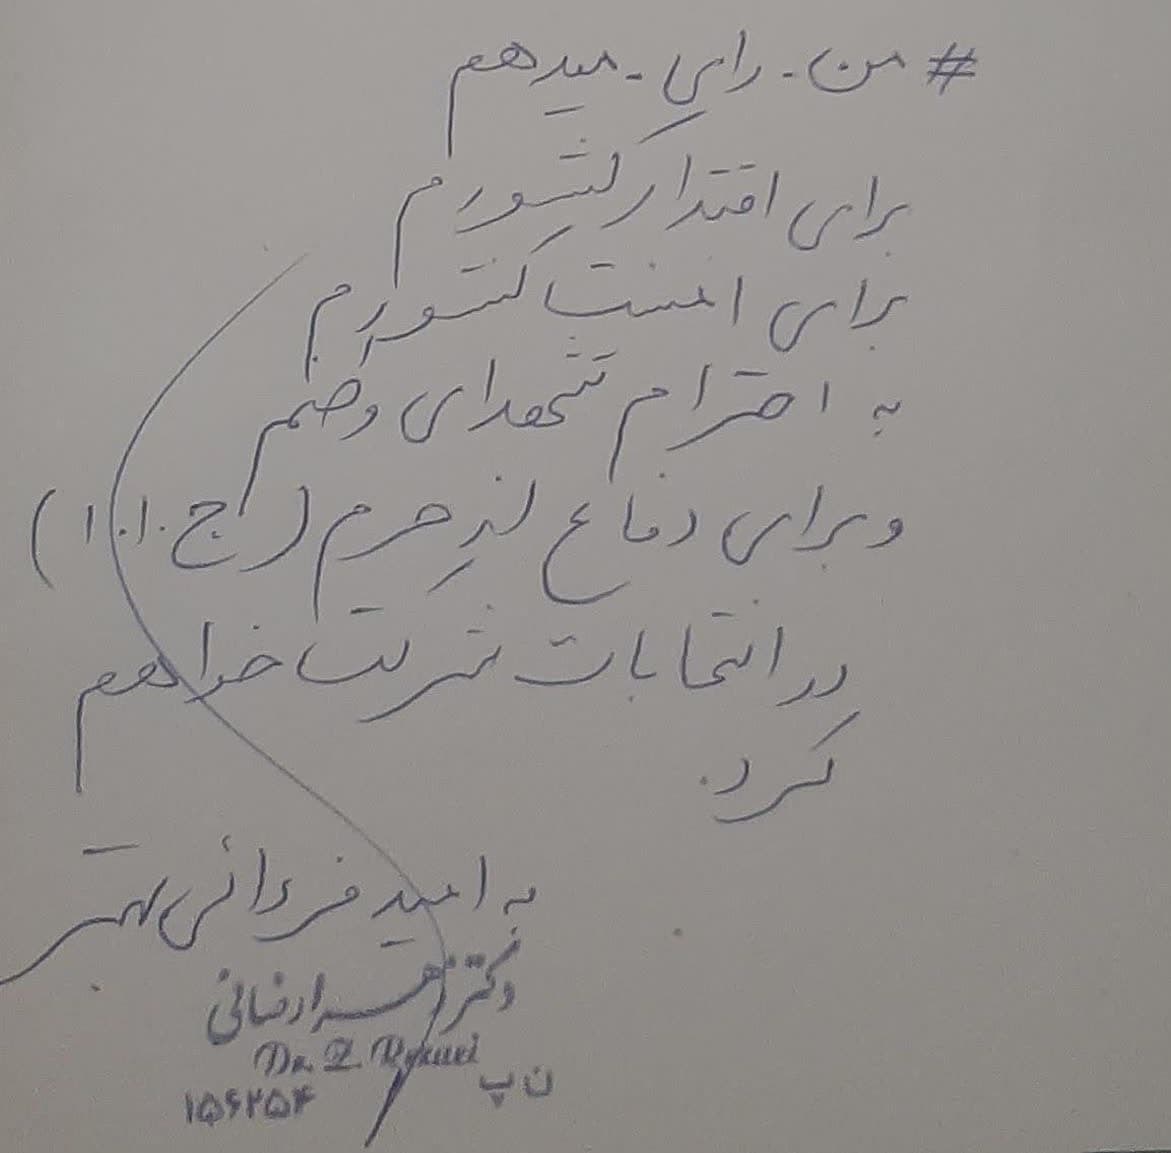 # من - رای - میدهم
برای اقتدار کشورم
برای امنیت کشورم
به احترام شهدای وطنم
و برای دفاع از حرم (ج.ا.ا)
در انتخابات شرکت خواهم
کرد.
به امید فردائی بهتر
دکتر زهرا رضائی
Dr. Z. Rezaei
ن پ
۱۵۶۲۵۴